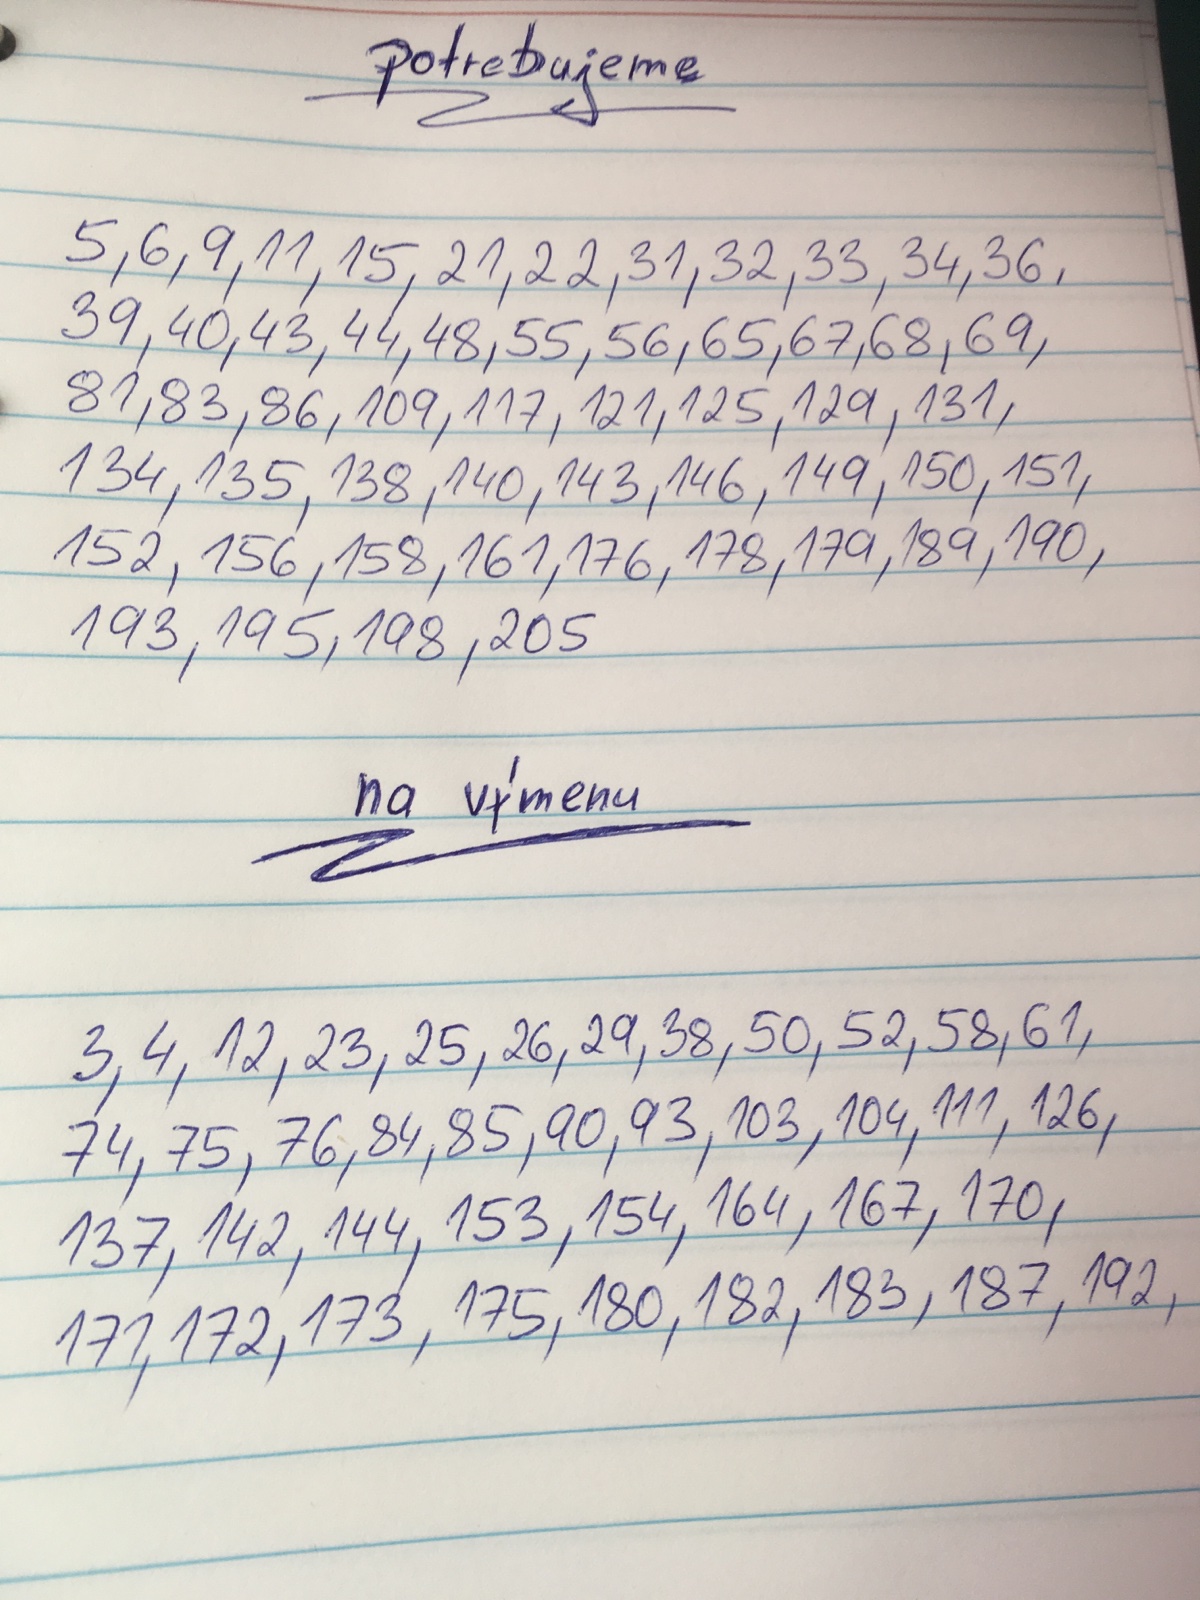 potrebujeme
5, 6, 9, 11, 15, 21, 22, 31, 32, 33, 34, 36,
39, 40, 43, 44, 48, 55, 56, 65, 67, 68, 69,
81, 83, 86, 109, 117, 121, 125, 129, 131,
134, 135, 138, 140, 143, 146, 149, 150, 151,
152, 156, 158, 161, 176, 178, 179, 189, 190,
193, 195, 198, 205
na výmenu
3, 4, 12, 23, 25, 26, 29, 38, 50, 52, 58, 61,
74, 75, 76, 84, 85, 90, 93, 103, 104, 111, 126,
137, 142, 144, 153, 154, 164, 167, 170,
171, 172, 173, 175, 180, 182, 183, 187, 192,